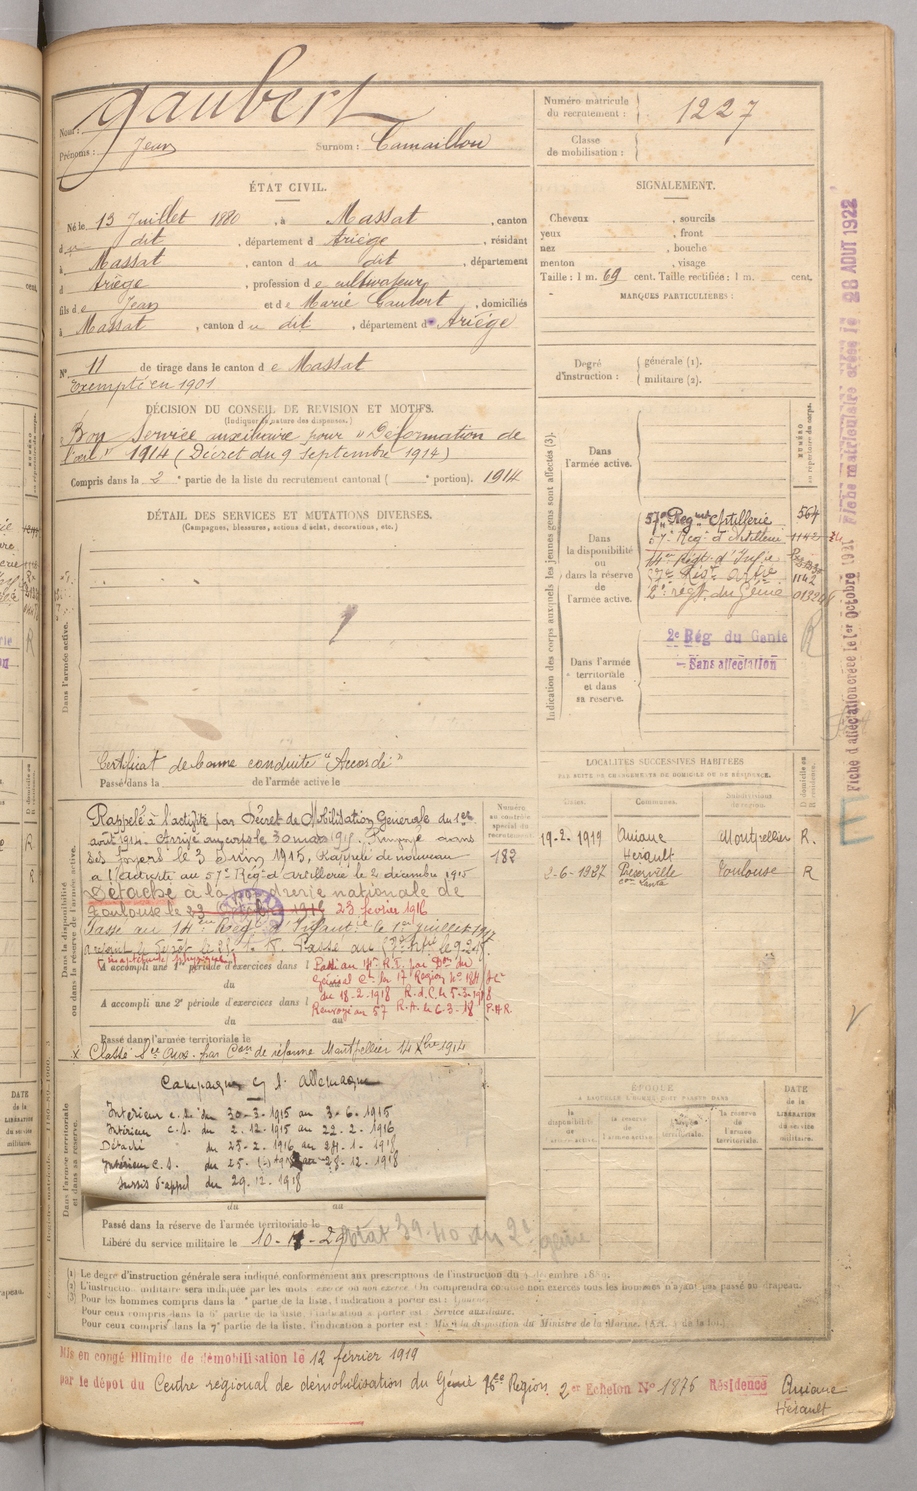 Nom : Gaubert
Prénoms : Jean Surnom : Camaillou
Numéro matricule du recrutement : 1227
Classe de mobilisation :
ÉTAT CIVIL.
Né le 13 Juillet 1880, à Massat, canton
du dit, département d Ariège, résidant
à Massat, canton du dit, département
d Ariège, profession de cultivateur
fils de Jean et de Marie Gaubert, domiciliés
à Massat, canton du dit, département d Ariège
N° 11 de tirage dans le canton de Massat
Exempté en 1901
SIGNALEMENT.
Cheveux , sourcils
yeux , front
nez , bouche
menton , visage
Taille : 1 m. 69 cent. Taille rectifiée : 1 m. cent.
MARQUES PARTICULIÈRES :
Degré d'instruction : générale (1).
militaire (2).
DÉCISION DU CONSEIL DE REVISION ET MOTIFS.
(Indiquer la nature des dispenses.)
Bon Service auxiliaire pour "Déformation de
1914 (Décret du 9 Septembre 1914)
Compris dans la 2e partie de la liste du recrutement cantonal ( e portion). 1914
DÉTAIL DES SERVICES ET MUTATIONS DIVERSES.
(Campagnes, blessures, actions d'éclat, décorations, etc.)
Dans l'armée active.
Certificat de bonne conduite "Accordé"
Passé dans la de l'armée active le
Indication des corps auxquels les jeunes gens sont affectés (3).
Dans l'armée active.
NUMÉRO au répertoire du corps.
Dans la disponibilité ou dans la réserve de l'armée active.
57e Regiment Artillerie 564
57e Reg. d'Artillerie 1142
14e Régt. d'Infie
57e Régt Artie 1142
2e régt. du Génie
Dans l'armée territoriale et dans sa réserve.
2e Rég du Genie
Sans affectation
Fiche d'affectation créée le 1er Octobre 1921 Fiche matriculaire créée le 28 AOUT 1922
LOCALITÉS SUCCESSIVES HABITÉES
PAR SUITE DE CHANGEMENTS DE DOMICILE OU DE RÉSIDENCE.
Dates. Communes. Subdivisions de région. D domicile ou R résidence.
19-2-1919 Aniane Hérault Montpellier R.
2-6-1937 Préserville con Lanta Toulouse R
Dans la disponibilité ou dans la réserve de l'armée active.
Numéro au contrôle spécial du recrutement.
182
Rappelé à l'activité par Décret de Mobilisation Générale du 1er
août 1914. Arrivé au corps le 30 mars 1915. Renvoyé dans
ses foyers le 3 Juin 1915, Rappelé de nouveau
à l'activité au 57e Reg. d'Artillerie le 2 décembre 1915
Détaché à la poudrerie nationale de
Toulouse le 23 Octobre 1916 23 fevrier 1916
Passé au 14e Rég. d'Infantie le 1er juillet 1917
(inaptitude physique)
A accompli une 1re période d'exercices dans l
du au
Passé au 14e R.I. par Don du
Général Ct la 17e Région
du 18-2-1918 R.d.C. le 5-3-1918
A accompli une 2e période d'exercices dans l
Renvoyé au 57 R.A. le 6-3-18 P.A.R.
du au
Passé dans l'armée territoriale le
Classé Sce Aux. par Con de réforme Montpellier 14 Xbre 1914
Dans l'armée territoriale et dans sa réserve.
Campagne c/ l'Allemagne
Intérieur c.s. du 30-3-1915 au 3-6-1915
Intérieur c.s. du 2-12-1915 au 22-2-1916
Détaché du 23-2-1916 au 24-1-1918
Intérieur c.s. du 25-1-1918 au 28-12-1918
Sursis d'appel du 29-12-1918
du au
Passé dans la réserve de l'armée territoriale le
Libéré du service militaire le 10-11-29
ÉPOQUE
À LAQUELLE L'HOMME DOIT PASSER DANS
la disponibilité de l'armée active.
la réserve de l'armée active.
l'armée territoriale.
la réserve de l'armée territoriale.
DATE de la LIBÉRATION du service militaire.
(1) Le degré d'instruction générale sera indiqué conformément aux prescriptions de l'instruction du 4 décembre 1889.
(2) L'instruction militaire sera indiquée par les mots : exercé ou non exercé. On comprendra comme non exercés tous les hommes n'ayant pas passé au drapeau.
(3) Pour les hommes compris dans la e partie de la liste, l'indication à porter est :
Pour ceux compris dans la 6e partie de la liste, l'indication à porter est : Service auxiliaire.
Pour ceux compris dans la 7e partie de la liste, l'indication à porter est : Mis à la disposition du Ministre de la Marine.
Mis en congé illimité de démobilisation le 12 février 1919
par le dépôt du Centre régional de démobilisation du Génie 16e Région 2e Echelon N° 1876 Résidence Aniane
Hérault